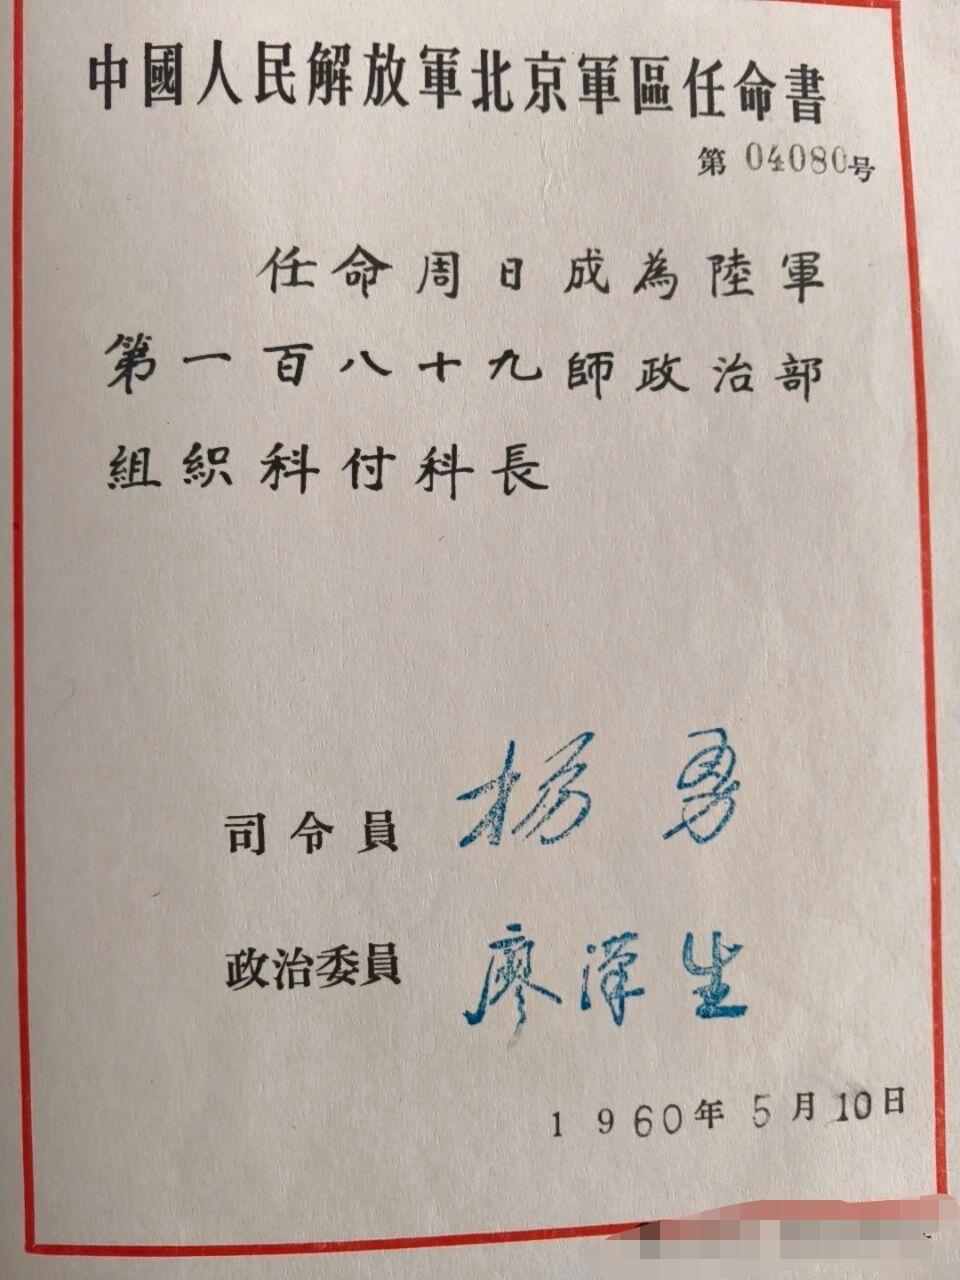 中國人民解放軍北京軍區任命書
第 04080号
任命周日成為陸軍
第一百八十九師政治部
組織科付科長
司令員 杨勇
政治委員 廖漢生
1960年5月10日